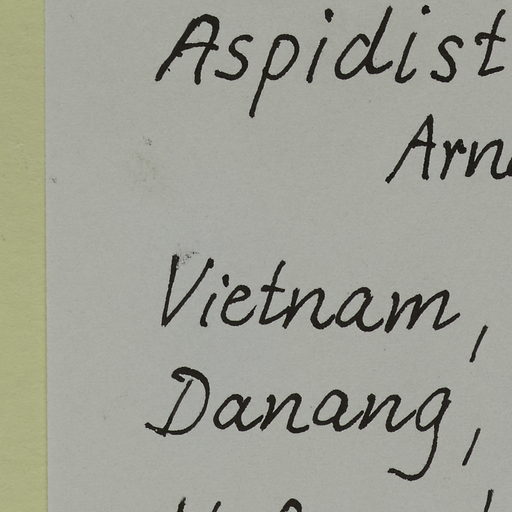 Aspidist
Arn
Vietnam,
Danang,